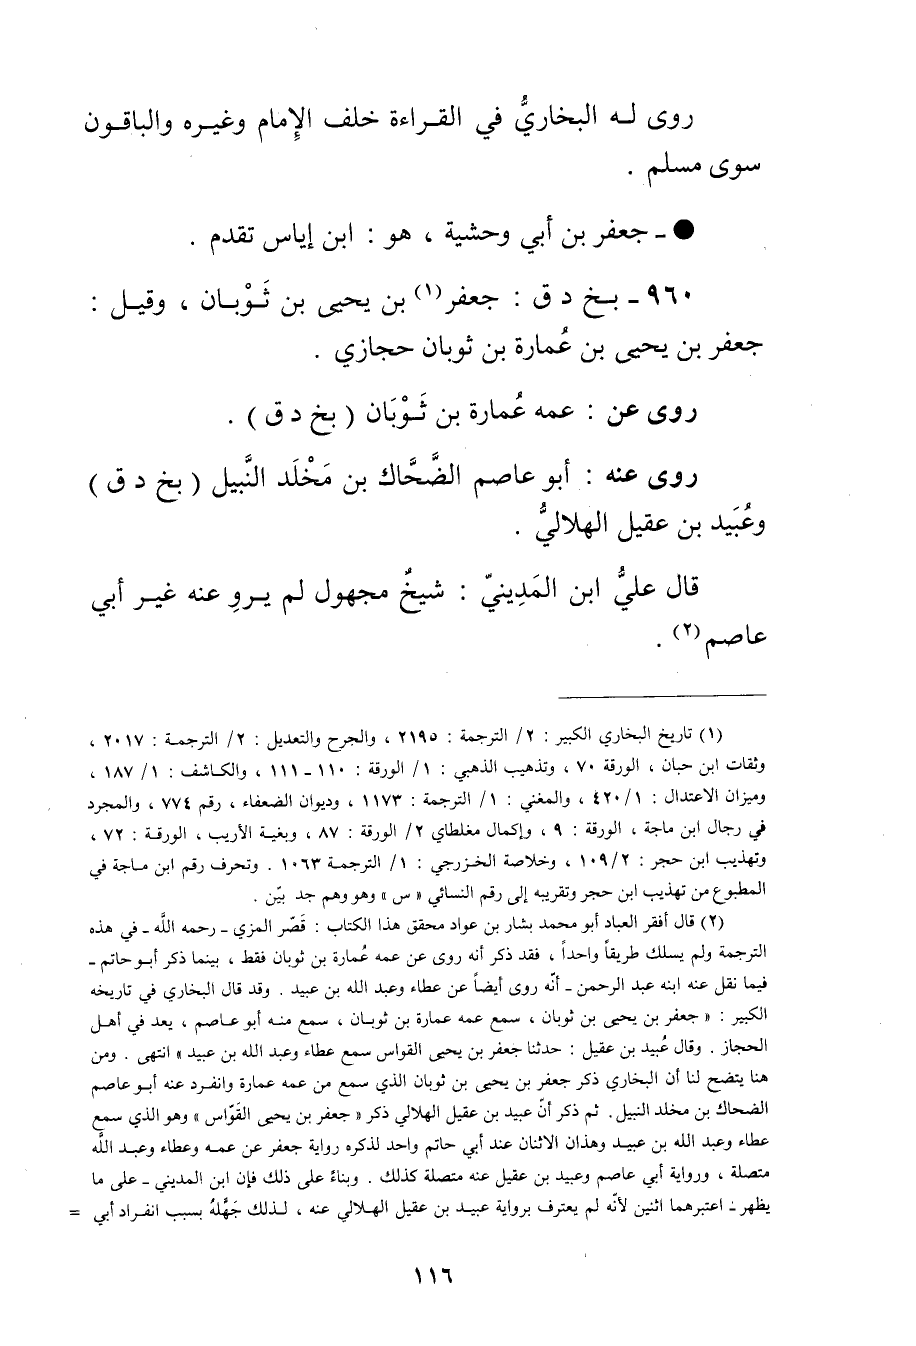 روى له البخاريُّ في القراءة خلف الإمام وغيره والباقون
سوى مسلم .
● ـ جعفر بن أبي وحشية ، هو : ابن إياس تقدم .
٩٦٠ ـ بخ د ق : جعفر(١) بن يحيى بن ثَوْبان ، وقيل :
جعفر بن يحيى بن عُمارة بن ثوبان حجازي .
روى عن : عمه عُمارة بن ثَوْبَان ( بخ د ق ) .
روى عنه : أبو عاصم الضَّحَّاك بن مَخْلَد النَّبيل ( بخ د ق )
وعُبَيد بن عقيل الهلاليُّ .
قال عليُّ ابن المَدِينيّ : شيخٌ مجهول لم يروِ عنه غير أبي
عاصم(٢) .
(١) تاريخ البخاري الكبير : ٢/ الترجمة : ٢١٩٥ ، والجرح والتعديل : ٢/ الترجمة : ٢٠١٧ ،
وثقات ابن حبان ، الورقة ٧٠ ، وتذهيب الذهبي : ١/ الورقة : ١١٠ ـ ١١١ ، والكاشف : ١/ ١٨٧ ،
وميزان الاعتدال : ١/ ٤٢٠ ، والمغني : ١/ الترجمة : ١١٧٣ ، وديوان الضعفاء ، رقم ٧٧٤ ، والمجرد
في رجال ابن ماجة ، الورقة : ٩ ، وإكمال مغلطاي ٢/ الورقة : ٨٧ ، وبغية الأريب ، الورقة : ٧٢ ،
وتهذيب ابن حجر : ٢/ ١٠٩ ، وخلاصة الخزرجي : ١/ الترجمة ١٠٦٣ . وتحرف رقم ابن ماجة في
المطبوع من تهذيب ابن حجر وتقريبه إلى رقم النسائي « س » وهو وهم جد بيّن .
(٢) قال أفقر العباد أبو محمد بشار بن عواد محقق هذا الكتاب : قَصّر المزي ـ رحمه اللَّه ـ في هذه
الترجمة ولم يسلك طريقاً واحداً ، فقد ذكر أنه روى عن عمه عُمارة بن ثوبان فقط ، بينما ذكر أبو حاتم ـ
فيما نقل عنه ابنه عبد الرحمن ـ أنّه روى أيضاً عن عطاء وعبد الله بن عبيد . وقد قال البخاري في تاريخه
الكبير : « جعفر بن يحيى بن ثوبان ، سمع عمه عمارة بن ثوبان ، سمع منه أبو عاصم ، يعد في أهل
الحجاز . وقال عُبيد بن عقيل : حدثنا جعفر بن يحيى القواس سمع عطاء وعبد الله بن عبيد » انتهى . ومن
هنا يتضح لنا أن البخاري ذكر جعفر بن يحيى بن ثوبان الذي سمع من عمه عمارة وانفرد عنه أبو عاصم
الضحاك بن مخلد النبيل. ثم ذكر أنّ عبيد بن عقيل الهلالي ذكر « جعفر بن يحيى القَوّاس » وهو الذي سمع
عطاء وعبد الله بن عبيد وهذان الاثنان عند أبي حاتم واحد لذكره رواية جعفر عن عمه وعطاء وعبد اللَّه
متصلة ، ورواية أبي عاصم وعبيد بن عقيل عنه متصلة كذلك . وبناءً على ذلك فإن ابن المديني ـ على ما
يظهر ـ اعتبرهما اثنين لأنّه لم يعترف برواية عبيد بن عقيل الهلالي عنه ، لذلك جَهَّلهُ بسبب انفراد أبي =
١١٦